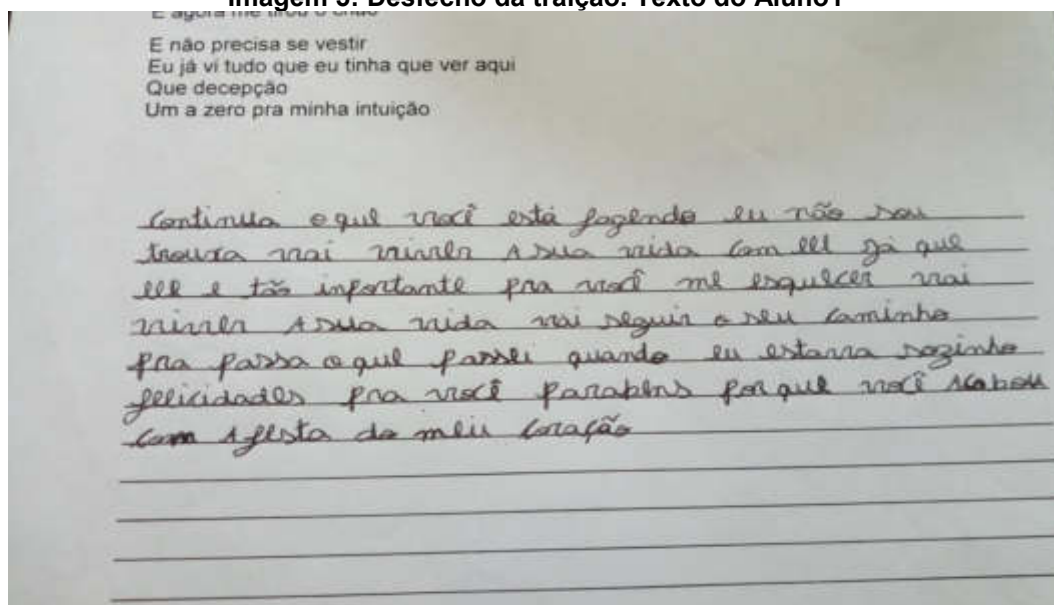 Imagem 5: Desfecho da traição. Texto do Aluno1
E agora me tirou o chão
E não precisa se vestir
Eu já vi tudo que eu tinha que ver aqui
Que decepção
Um a zero pra minha intuição
Continua o que você está fazendo eu não sou
trouxa vai viver A sua vida com ele já que
ele e tão importante pra você me esquecer vai
viver A sua vida vai seguir o seu caminho
pra passa o que passei quando eu estava sozinho
felicidades pra você parabens por que você Acabou
com A festa do meu coração